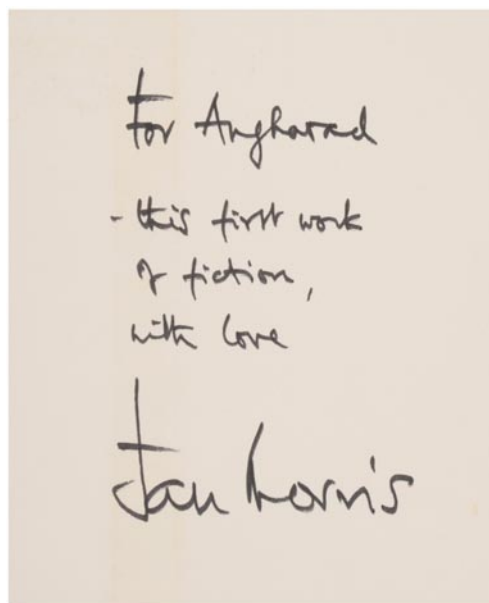 For Angharad
- this first work
of fiction,
with love
Jan Morris